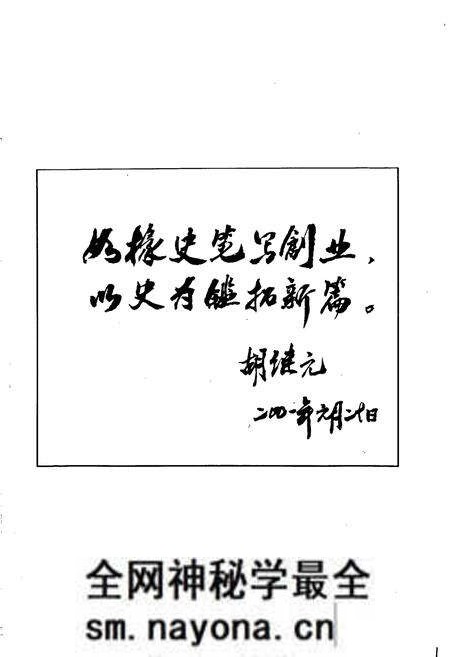 如椽史笔写創业，
以史为鑑拓新篇。
胡继元
二〇〇一年六月二十日
全网神秘学最全
sm.nayona.cn